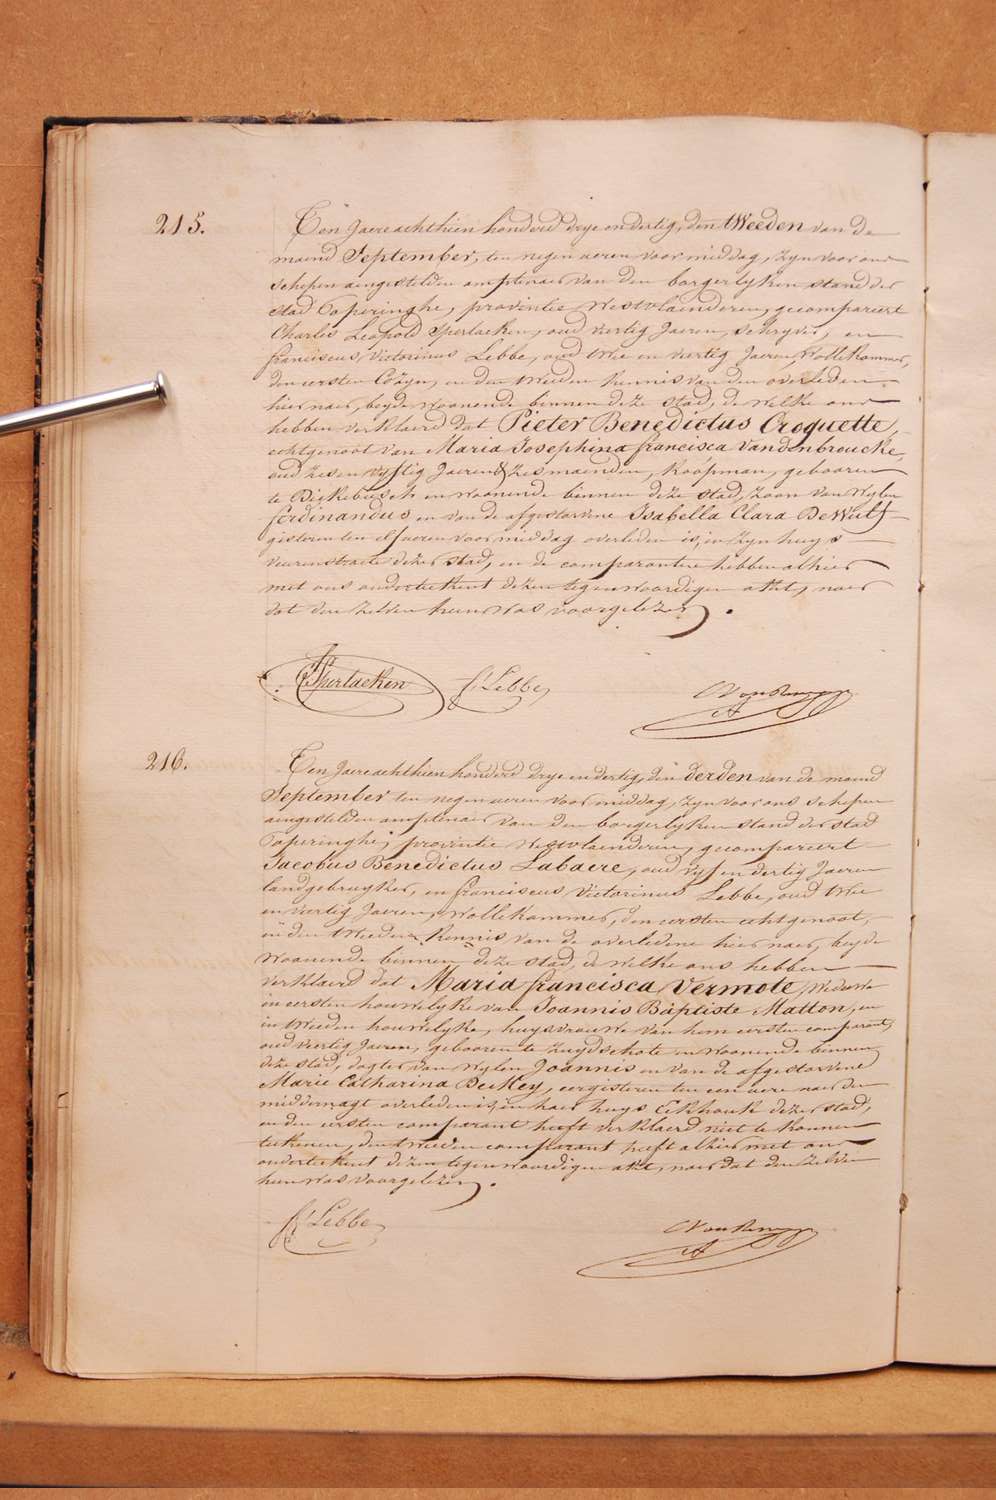 215.
Ten Jaere achthien honderd drye en dertig, den tweeden van de
maend September, ten negen ueren voor middag, zyn voor ons
schepen aengestelden amptenaer van den borgerlyken stand der
stad Poperinghe, provintie Westvlaenderen, gecompareert
Charles Leopold Sperlaeken, oud viertig Jaeren, schryver, en
franciscus Victorinus Lebbe, oud twee en viertig Jaeren, Wollekammer,
den eersten Cosyn, en den tweeden kennis van den overleden
hier naer, beyde woonende binnen deze stad, de welke ons
hebben verklaerd dat Pieter Benedictus Croquette,
echtgenoot van Maria Josephina francisca Vandenbroucke,
oud zes en vyftig Jaeren & zes maenden, koopman, gebooren
te Dickebusch en woonende binnen deze stad, zoon van wylen
ferdinandus en van de afgestorvene Isabella Clara De Wulf
gisteren ten elf ueren voor middag overleden is, in zyn huys
veurnstraete dezer stad, en de comparanten hebben alhier
met ons onderteekent dezen tegenwoordigen akte, naer
dat den zelven hun was voorgelezen.
Sperlaeken f. Lebbe
216.
Ten Jaere achthien honderd drye en dertig, den derden van de maend
September ten negen ueren voor middag, zyn voor ons schepen
aengestelden amptenaer van den borgerlyken stand der stad
Poperinghe, provintie Westvlaenderen, gecompareert
Jacobus Benedictus Labaere, oud vyf en dertig Jaeren
landgebruyker, en franciscus Victorinus Lebbe, oud twee
en viertig Jaeren, Wollekammer, den eersten echtgenoot,
en den tweeden kennis van de overledene hier naer, beyde
woonende binnen deze stad, de welke ons hebben
verklaerd dat Maria francisca Vermote, Weduwe
in eersten houwelyke van Joannis Baptiste Matton, en
in tweeden houwelyke, huysvrouwe van hem eersten comparant,
oud viertig Jaeren, gebooren te Zuydschote en woonende binnen
deze stad, dogter van wylen Joannis en van de afgestorvene
Marie Catharina Deckey, eergisteren ten een uere naer den
middernagt overleden is, in haer huys Eekhoute dezer stad,
en den eersten comparant heeft verklaerd niet te konnen
teekenen, den tweeden comparant heeft alhier met ons
onderteekent dezen tegenwoordigen akte, naer dat den zelven
hun was voorgelezen.
f. Lebbe